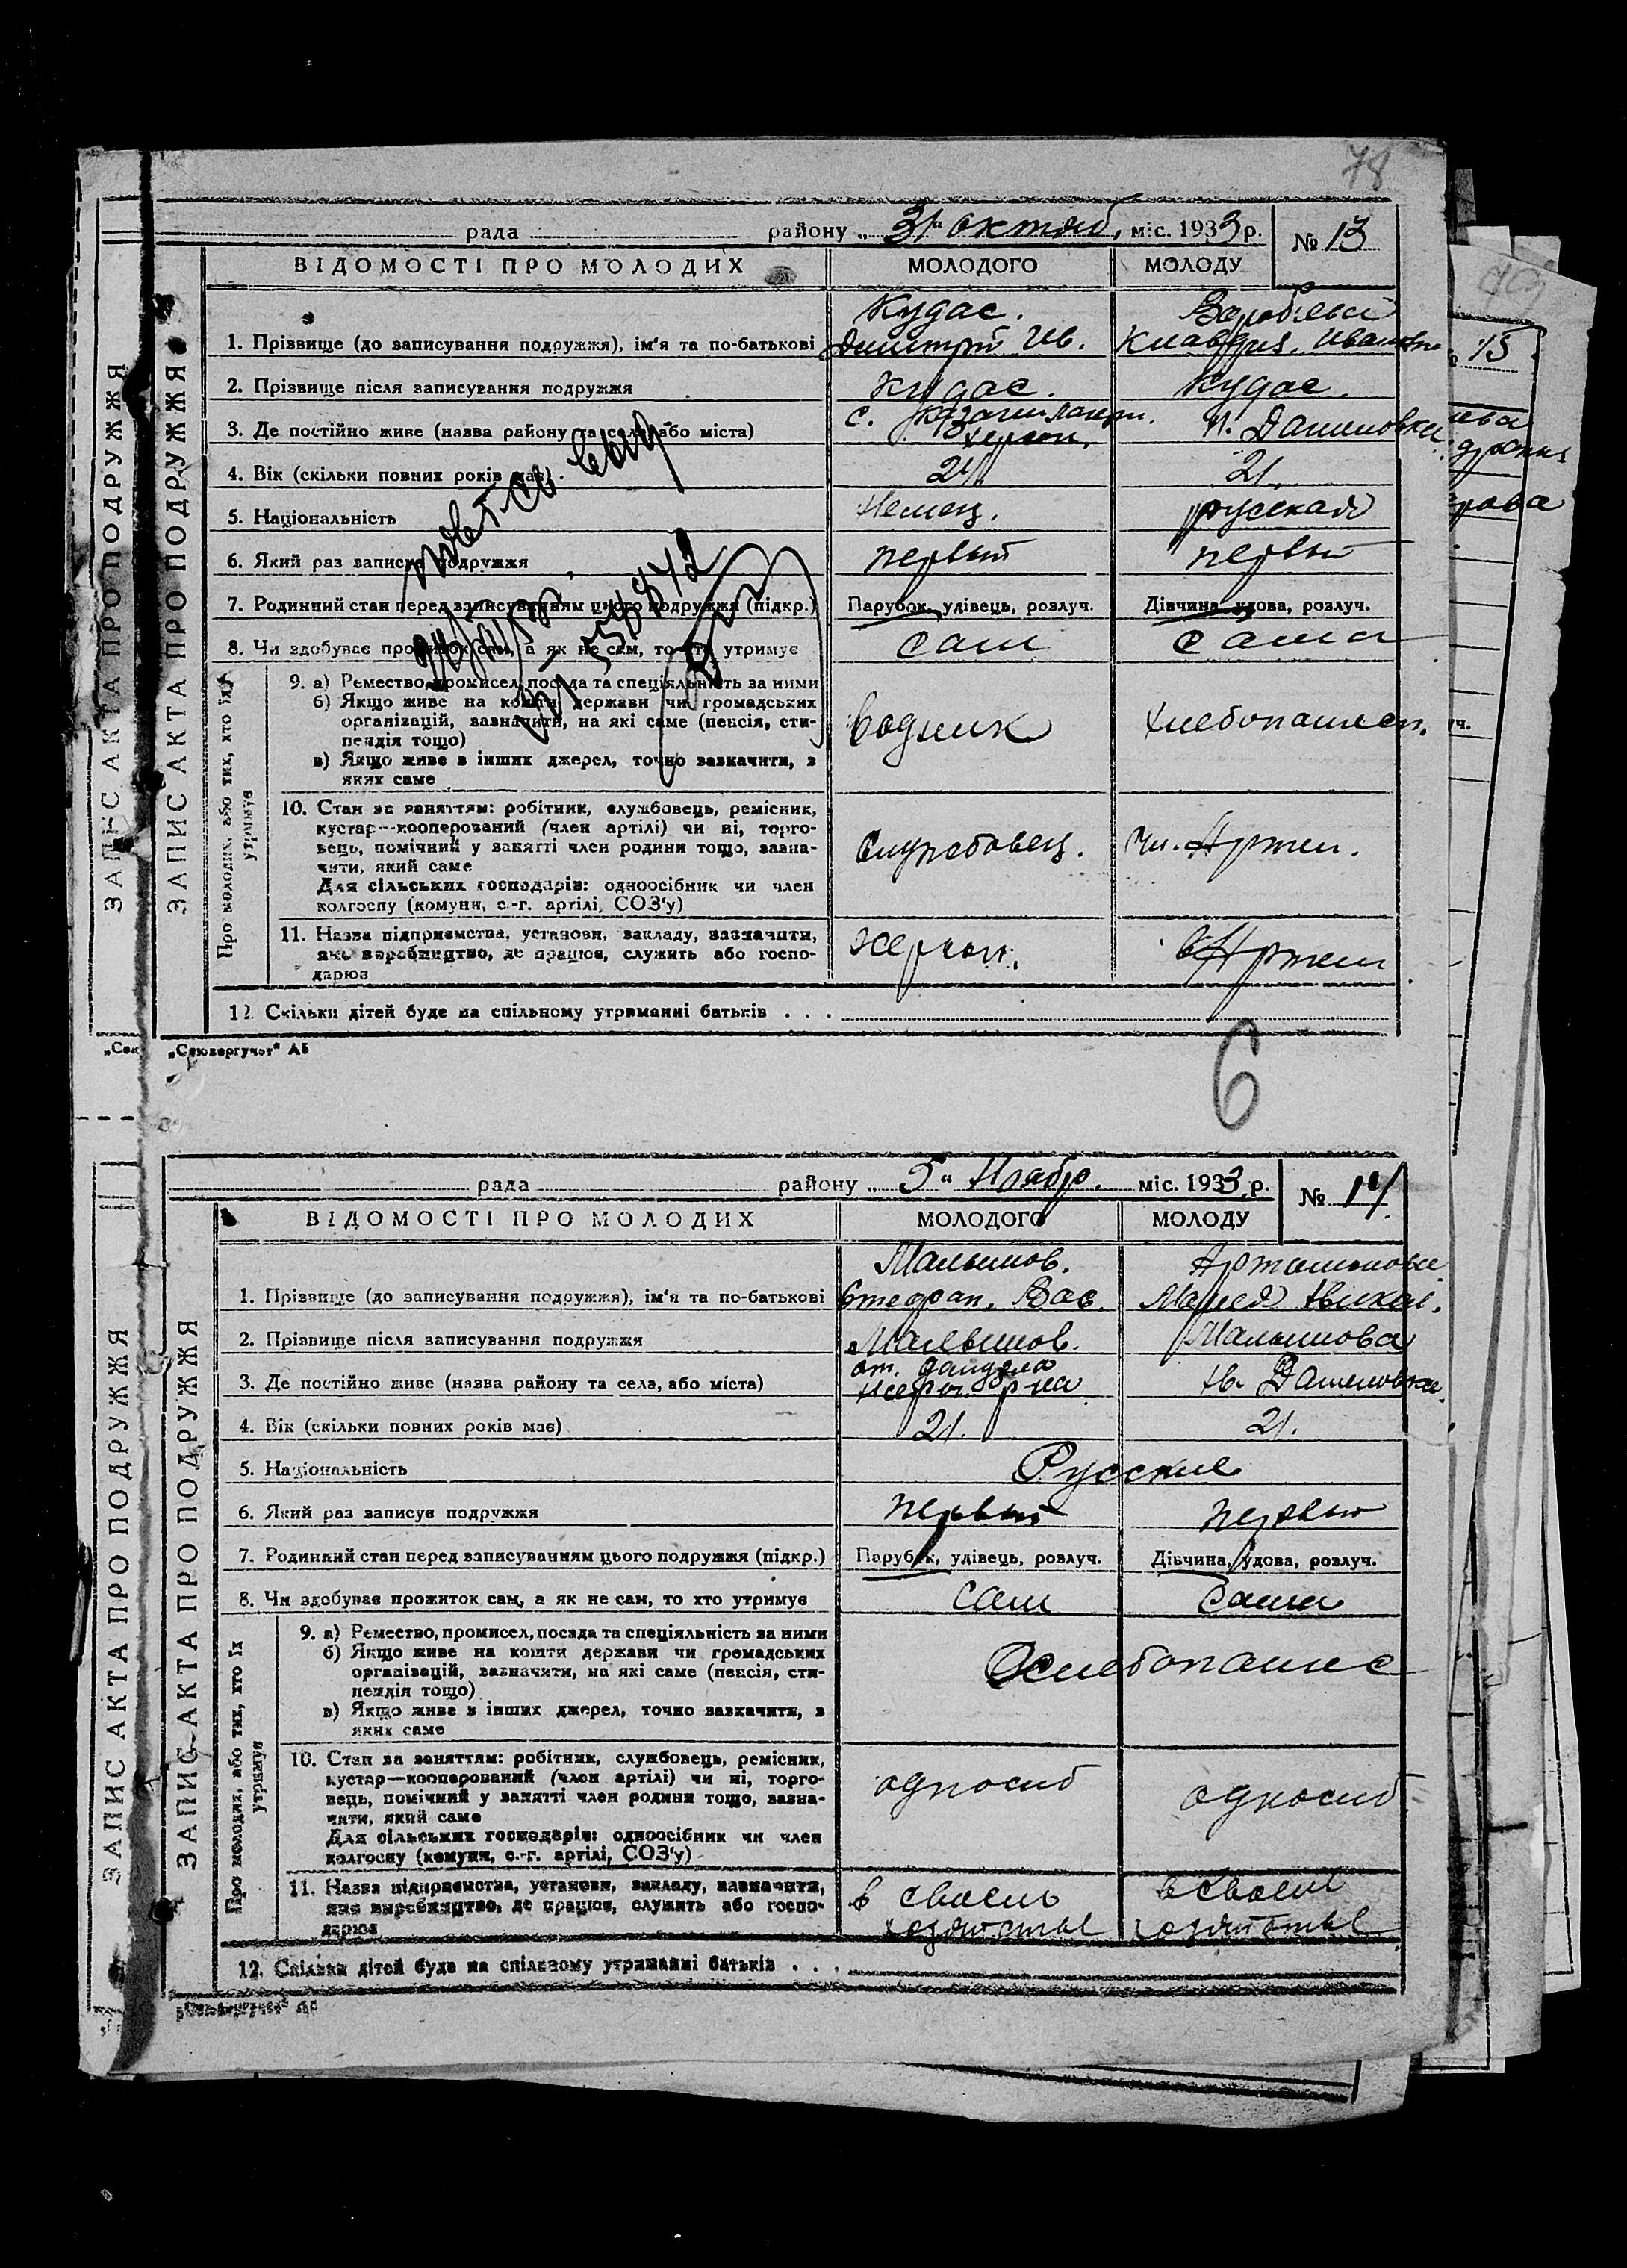 78
рада району „31“ октяб. міс. 1933 р. № 13
ВІДОМОСТІ ПРО МОЛОДИХ МОЛОДОГО МОЛОДУ
Кудас.
1. Прізвище (до записування подружжя), ім'я та по-батькові Дмитрий Ив. Клавдия Ивановна
2. Прізвище після записування подружжя Кудас. Кудас.
3. Де постійно живе (назва району та села або міста) с. Херсон. Н. Дашеновка
4. Вік (скільки повних років має) 24 21.
5. Національність Немец. русская
6. Який раз записує подружжя первый первый
7. Родинний стан перед записуванням цього подружжя (підкр.) Парубок, удівець, розлуч. Дівчина, удова, розлуч.
8. Чи здобуває прожиток сам, а як не сам, то хто утримує сам сама
Про молодих, або тих, хто їх утримує
9. а) Ремество, промисел, посада та спеціяльність за ними
б) Якщо живе на кошти держави чи громадських
організацій, зазначити, на які саме (пенсія, сти-
пендія тощо) водник хлебопашец.
в) Якщо живе з інших джерел, точно зазначити, з
яких саме
10. Стан за заняттям: робітник, службовець, ремісник,
кустар—кооперований (член артілі) чи ні, торго-
вець, помічний у занятті член родини тощо, зазна- Службовец. Чл. Артел.
чити, який саме
Для сільських господарів: одноосібник чи член
колгоспу (комуни, с.-г. артілі, СОЗ'у)
11. Назва підприємства, установи, закладу, зазначити, Херсон. в Артели
яке виробництво, де працює, служить або госпо-
дарює
12. Скільки дітей буде на спільному утриманні батьків . . .
„Союзоргучот“ А5
ЗАПИС АКТА ПРО ПОДРУЖЖЯ
ЗАПИС АКТА ПРО ПОДРУЖЖЯ
6
рада району „5“ Ноябр. міс. 1933 р. № 14
ВІДОМОСТІ ПРО МОЛОДИХ МОЛОДОГО МОЛОДУ
Малышов.
1. Прізвище (до записування подружжя), ім'я та по-батькові Стефан. Вас. Мария Никол.
2. Прізвище після записування подружжя Малышов. Малышова
3. Де постійно живе (назва району та села, або міста) р-на Н. Дашеновка
4. Вік (скільки повних років має) 21. 21.
5. Національність Русские
6. Який раз записує подружжя первый первый
7. Родинний стан перед записуванням цього подружжя (підкр.) Парубок, удівець, розлуч. Дівчина, удова, розлуч.
8. Чи здобуває прожиток сам, а як не сам, то хто утримує сам сама
Про молодих, або тих, хто їх утримує
9. а) Ремество, промисел, посада та спеціяльність за ними
б) Якщо живе на кошти держави чи громадських
організацій, зазначити, на які саме (пенсія, сти- Хлебопашес
пендія тощо)
в) Якщо живе з інших джерел, точно зазначити, з
яких саме
10. Стан за заняттям: робітник, службовець, ремісник,
кустар—кооперований (член артілі) чи ні, торго- односиб односиб
вець, помічний у занятті член родини тощо, зазна-
чити, який саме
Для сільських господарів: одноосібник чи член
колгоспу (комуни, с.-г. артілі, СОЗ'у)
11. Назва підприємства, установи, закладу, зазначити, в своем в своем
яке виробництво, де працює, служить або госпо- хозяйстве хозяйстве
дарює
12. Скільки дітей буде на спільному утриманні батьків . . .
„Союзоргучот“ А5
ЗАПИС АКТА ПРО ПОДРУЖЖЯ
ЗАПИС АКТА ПРО ПОДРУЖЖЯ
79
15